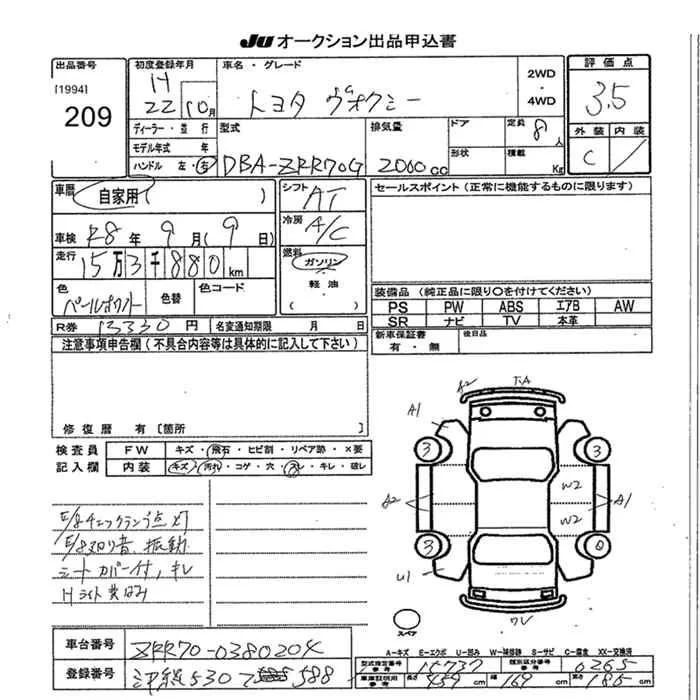 JU オークション出品申込書
出品番号
[1994]
209
初度登録年月
H
22 10月
ディーラー・並 行
モデル年式 年
ハンドル 左・右
車名・グレード
トヨタ ヴォクシー
2WD
・
4WD
型式
DBA-ZRR70G
排気量
2000 cc
ドア
形状
定員 8 人
積載 Kg
評価点
3.5
外装 内装
C /
車歴
自家用 ( )
車検 28 年 9 月 ( 9 日)
走行
15万3千880 km
色
色替
色コード
シフト
AT
冷房
A/C
燃料
ガソリン
・
軽油
( )
セールスポイント (正常に機能するものに限ります)
装備品 (純正品に限り○を付けてください)
PS PW ABS エアB AW
SR ナビ TV 本革
新車保証書
有 ・ 無
後日品
R券 13330 円
名変通知期限 月 日
注意事項申告欄 (不具合内容等は具体的に記入して下さい)
修復歴 有 [箇所 ]
検査員
記入欄
FW キズ・飛石・ヒビ割・リペア跡・×要
内装 キズ・汚れ・コゲ・穴・スレ・キレ・破レ
E/gチェックランプ点灯
E/g切り音、振動
シートカバー付、キレ
Hライト黄ばみ
A2
A1
3
3
A2
3
U1
W2
W2
A1
スペア
A-キズ E-エクボ U-凹み W-補修跡 S-サビ C-腐食 XX-交換済
車台番号 ZRR70-0380204
登録番号 沖縄 530 588
型式指定番号
参考
15737
類別区分番号
参考
0265
車庫証明用
参考
長さ 459 cm
幅 169 cm
高さ 185 cm